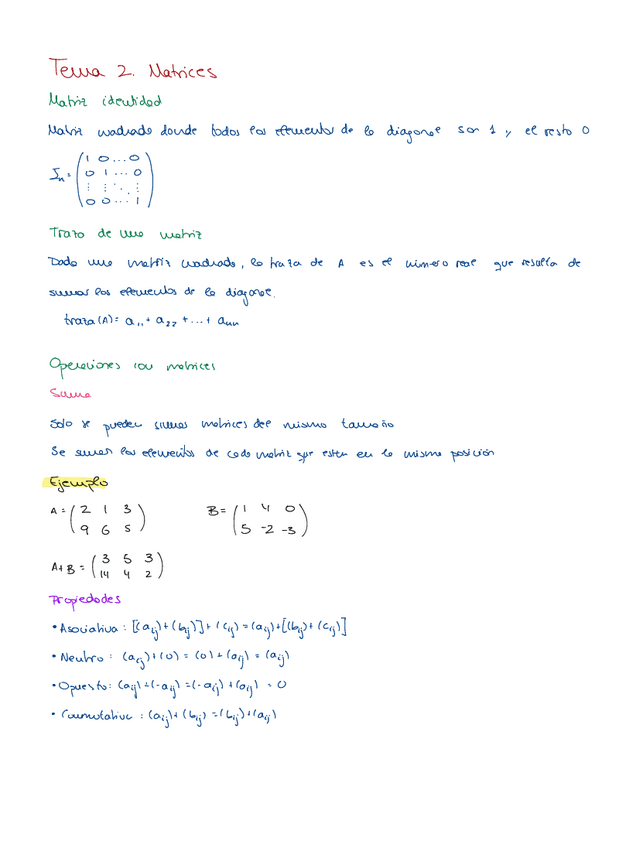 Tema 2. Matrices
Matriz identidad
Matriz cuadrada donde todos los elementos de la diagonal son 1 y el resto 0
Iₙ = ( 1 0 ... 0
0 1 ... 0
⋮ ⋮ ⋱ ⋮
0 0 ... 1 )
Traza de una matriz
Dada una matriz cuadrada, la traza de A es el número real que resulta de
sumar los elementos de la diagonal.
traza(A) = a₁₁ + a₂₂ + ... + aₙₙ
Operaciones con matrices
Suma
Solo se pueden sumar matrices del mismo tamaño
Se suman los elementos de cada matriz que estén en la misma posición
Ejemplo
A = ( 2 1 3 B = ( 1 4 0
9 6 5 ) 5 -2 -3 )
A+B = ( 3 5 3
14 4 2 )
Propiedades
• Asociativa: [(aij)+(bij)]+(cij) = (aij)+[(bij)+(cij)]
• Neutro: (aij)+(0) = (0)+(aij) = (aij)
• Opuesto: (aij)+(-aij) = (-aij)+(aij) = 0
• Conmutativa: (aij)+(bij) = (bij)+(aij)